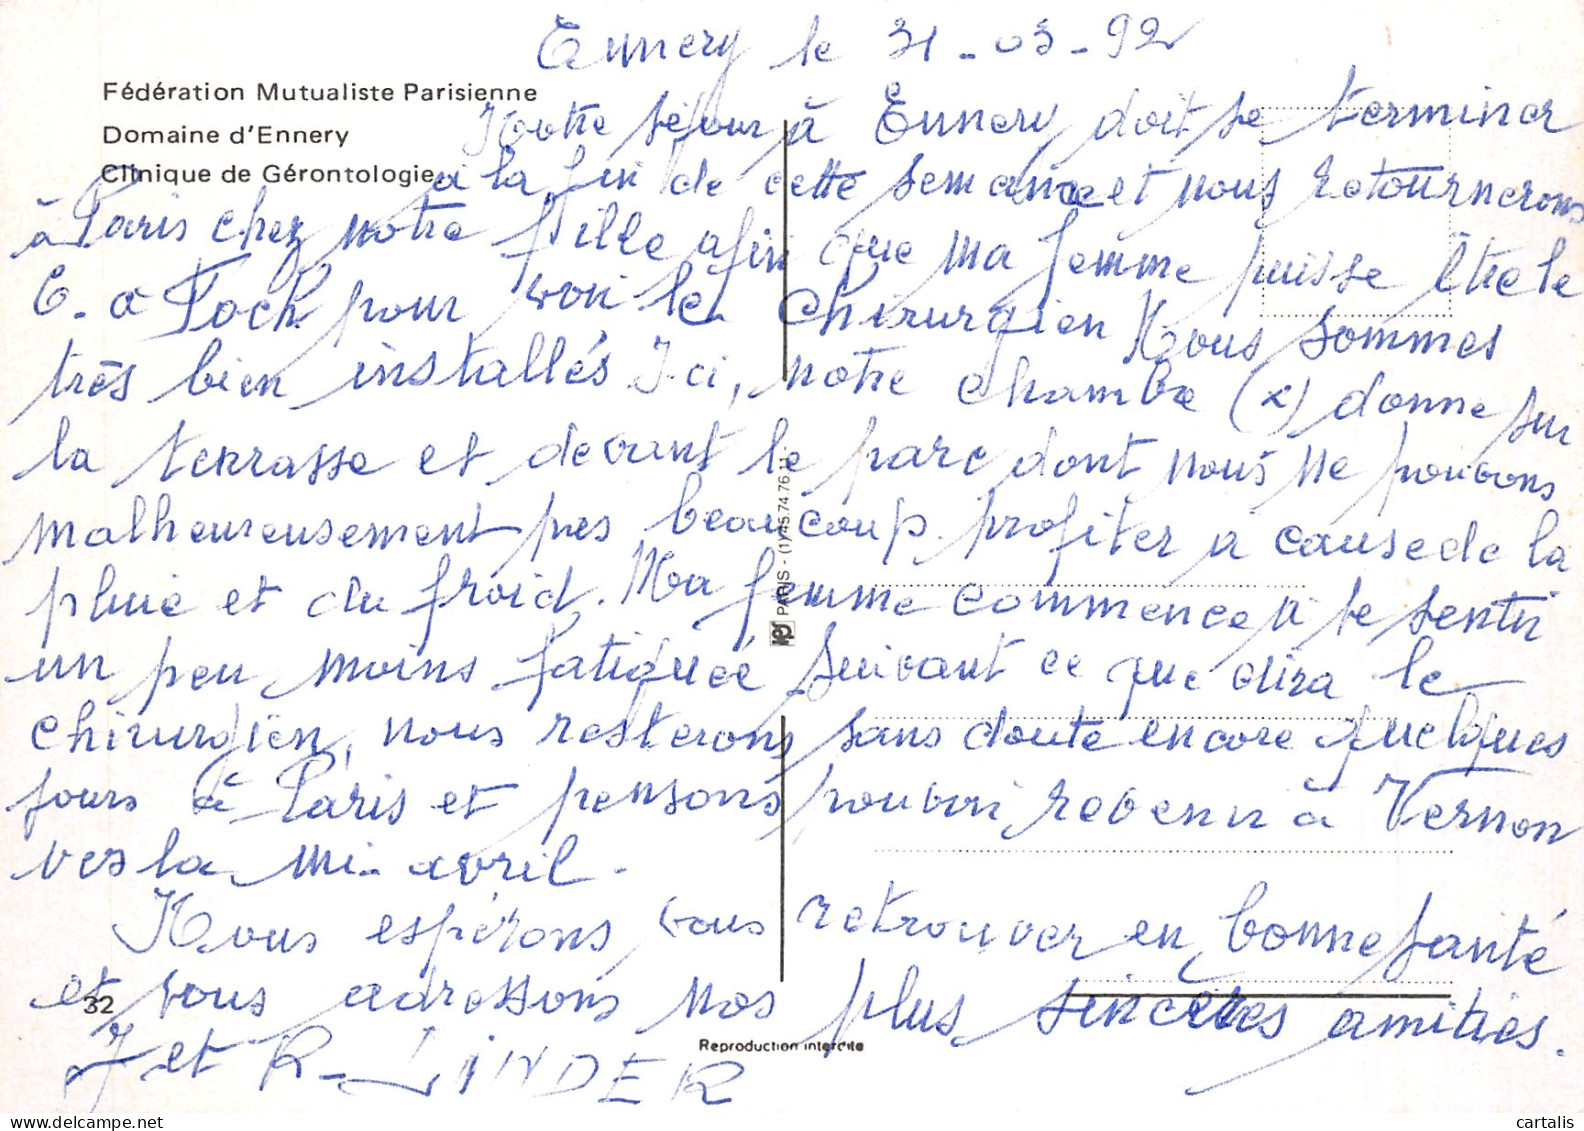 Ennery le 31-03-92
Fédération Mutualiste Parisienne
Domaine d'Ennery
Clinique de Gérontologie
Notre séjour à Ennery doit se terminer
à la fin de cette semaine et nous retournerons
à Paris chez notre fille afin que ma femme puisse être le
6. à Foch pour voir le chirurgien Nous sommes
très bien installés Ici, notre chambre (x) donne sur
la terrasse et devant le parc dont nous ne pouvons
malheureusement pas beaucoup profiter à cause de la
pluie et du froid. Ma femme commence à se sentir
un peu moins fatiguée suivant ce que dira le
chirurgien, nous resterons sans doute encore quelques
jours à Paris et pensons pouvoir revenir à Vernon
vers la mi-avril.
Nous espérons vous retrouver en bonne santé
et vous adressons nos plus sincères amitiés.
J et R. LINDER
32
PARIS - (1) 45.74.76.11
Reproduction interdite
cartalis